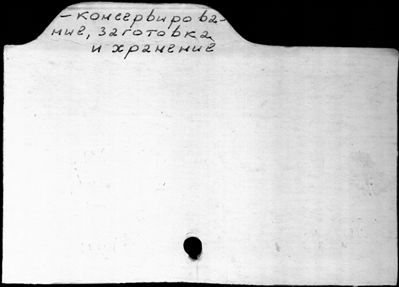 - консервирова-
ние, заготовка
и хранение